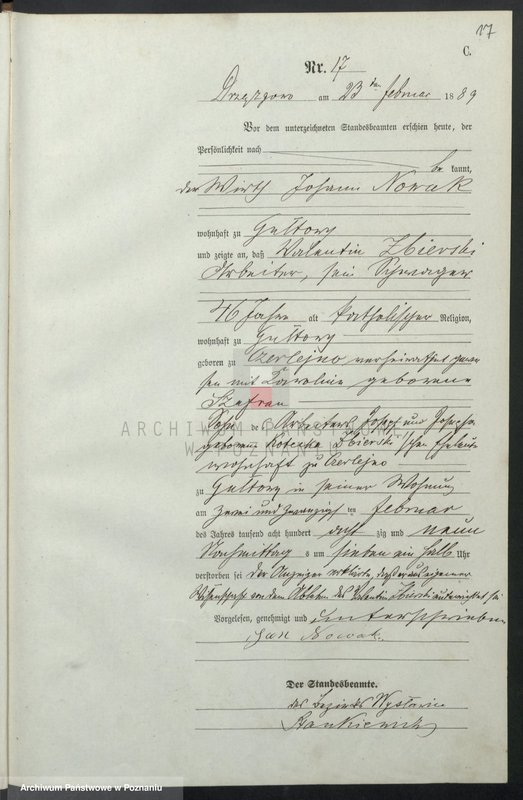 17
C.
Nr. 17
am 23 ten Februar 1889
Vor dem unterzeichneten Standesbeamten erschien heute, der
Persönlichkeit nach
be kannt,
der Wirth Johann Nowak
wohnhaft zu Gultowy
und zeigte an, daß Valentin Zbierski
Arbeiter, sein Schwager
46 Jahre alt katholischer Religion,
wohnhaft zu Gultowy
geboren zu Czerlejno verheirathet gewe
sen mit Karoline geborene
Szafran
Sohn des Arbeiters Josef und Josepha
geborene Zbierski'schen Eheleute
wohnhaft zu Czerlejno
zu Gultowy in seiner Wohnung
am zwei und zwanzigsten Februar
des Jahres tausend acht hundert acht zig und neun
Vormittags um sieben ein halb Uhr
verstorben sei Der Anzeiger erklärte, daß er aus eigener
Wissenschaft von dem Ableben des Valentin Zbierski unterrichtet sei
Vorgelesen, genehmigt und unterschrieben
Jan Nowak
Der Standesbeamte.
des Bezirks
ARCHIWUM PAŃSTWOWE
W POZNANIU
Archiwum Państwowe w Poznaniu